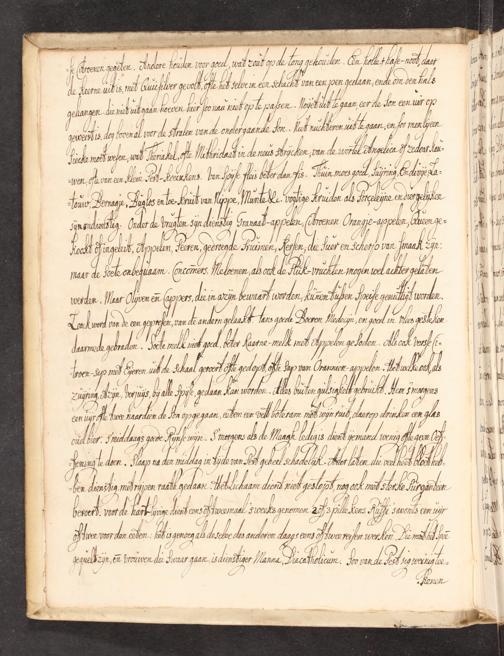 Citroenen gegeten. Andere houden voor goed, wat zout op de tong gehouden. Een holle hasenoot, daar
de kerne uit is, met Quicksilver gevolt, ofte het selve in een schacht van een pen gedaan, ende om den hals
gehangen. die niet uit gaan hoeven, hier soo nau niet op te passen. Moet uit te gaan eer de Son een uir op
geweest is, deg boven al voor de stralen van de ondergaande Son. Niet nuchteren uit te gaan, en soo men by een
siecke moet wesen, wat Theriakel, ofte Mithridaat in de neus strycken, van de wortel Angelica of zedoar kau-
wen, ofte van een klein Pest-koeckxkens. Van Spyse flus beter dan fis. Tuin moes goed, Suyring, Endivye, sla-
touw, Bernagie, Buglos en toe-kruit van Nippe, Munte &c. vogtige kruiden als Porceleyne, en diergelyken
syn ondienstig. Onder de vrugten syn dienstig Granaat-appelen, Citroenen Orange-appelen, Queen ge-
kookt of ingeleit, Appelen, Peeren, geroogde Pruimen, Kersen, die suer en scherp van smaak zyn:
maar de soete onbequaam. Concomers, Meloenen, als ook de Pluk-vruchten mogen wel achter gelaten
werden. Maar Olyven en Cappers, die in azyn bewaart worden, kunnen tusschen Speise genuttigt worden.
Look word van de een gepresen, van de andere gelaakt. tans goede Boeren Medicyn, en goed in vlees gesteken
daarmede gebraden. Soete melk niet goed, beter Kaarne-melk met Appelen gesoden. Als ook versse Ci-
troen-sap met Eyeren uit de schaal geroert ofte gedopt, ofte sap van Orannien-appelen. Het welk ook, als
zuiring, Azyn, Verjuis, by alle spyse, gedaan kan worden. Alles buiten gulsigheit gebruikt. Hem 's morgens
een uyr ofte twee naar dien de Son op gegaan, eeten een versch boteram met wynruit, daar op drincken een glas
oud bier. 's middaags goede Rynse wyn. 's morgens als de Maage ledig is dient ymand weinig ofte geen Oef-
fening te doen. Slaap na den middag in tyde van Pest geheel schadelik. Ader laten, die veel bloet heb-
ben dienstig, met rypen raade gedaan. Het Lichaam dient niet gestopt, nog ook met sterke Purgatien
beroert. voor de hart-lyvige dient eens ofte twemaal 's weeks genomen 2 of 3 pillekens Ruffi 's avonds een uyr
of twee voor dan eeten. het is genoeg als deselve den anderen daags eens of twee reysen wercken. Die met het spe
gequelt zyn, en vrouwen die swaar gaan, is dienstiger Manna, Diacatholicum. Soo van de Pest sig weinig te-
kenen